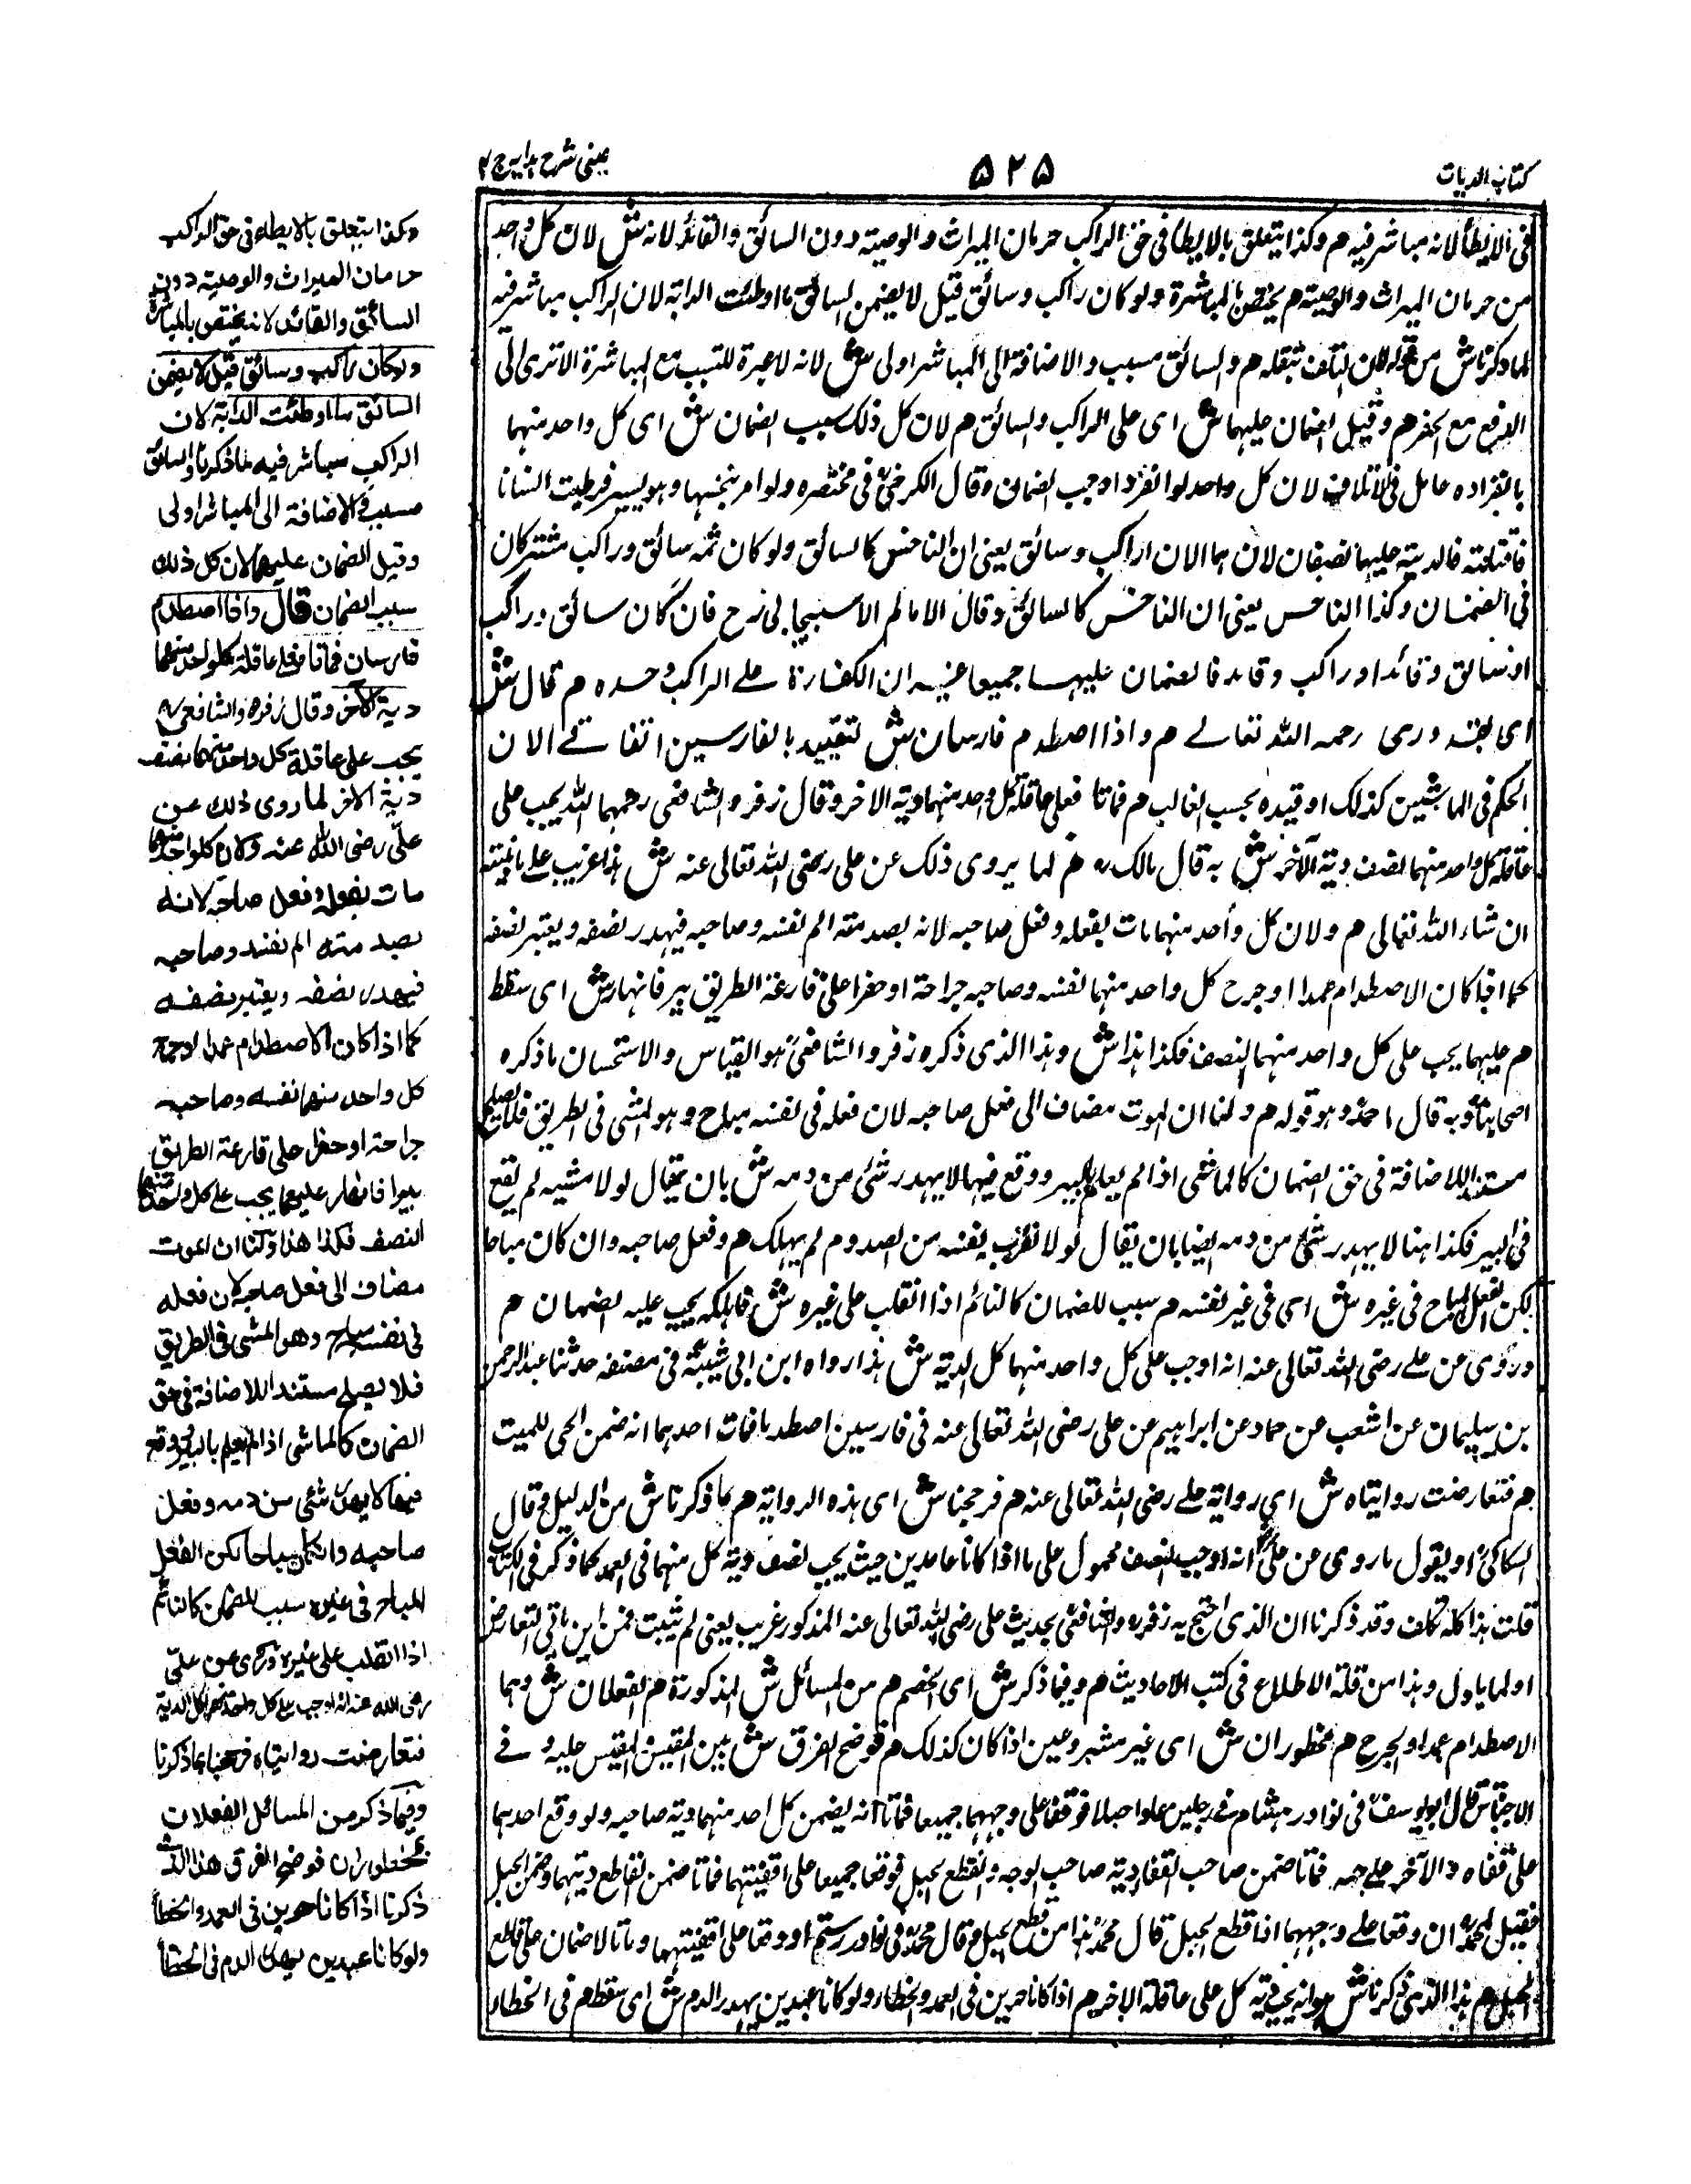 كتاب الديات
٥٢٥
عينى شرح هدايه ج ٤
فى الايطأ لانه مباشر فيه هم وكذا يتعلق بالايطأ فى حق الراكب حرمان الميراث والوصية دون السائق والقائد لانه ش لان كل واحد
من حرمان الميراث والوصية هم يختص بالمباشرة ولو كان راكب وسائق قيل لا يضمن السائق ما اوطئت الدابة لان الراكب مباشر فيه
لما ذكرنا ش من قوله لان التلف بثقله هم والسائق مسبب والاضافة الى المباشر اولى ش لانه لا عبرة للتسبب مع المباشرة الا ترى الى
الدفع مع الحفر هم وقيل الضمان عليهما ش اى على الراكب والسائق هم لان كل ذلك سبب الضمان ش اى كل واحد منهما
بانفراده عامل فى الاتلاف لان كل واحد لو انفرد اوجب الضمان وقال الكرخى فى مختصره ولو امر بنخسها وهو يسير فوطيت انسانا
فقتلته فالدية عليهما نصفان لان هما الان راكب وسائق يعنى ان الناخس كالسائق ولو كان ثمه سائق وراكب مشتركان
فى الضمان وكذا الناخس يعنى ان الناخس كالسائق وقال الامام الاسبيجابى رح فان كان سائق وراكب
او سائق وقائد او راكب وقائد فالضمان عليهما جميعا غير ان الكفارة على الراكب وحده م قال ش
اى القدورى رحمه الله تعالى م واذا اصطدم فارسان ش تقييد بالفارسين اتفاقى لان
الحكم فى الماشيين كذلك او قيده بحسب الغالب هم فماتا فعلى عاقلة كل واحد منهما دية الاخر وقال زفر والشافعى رحمهما الله يجب على
عاقلة كل واحد منهما نصف دية الآخر ش به قال مالك م لما يروى ذلك عن على رضى الله تعالى عنه ش هذا غريب على ما نبينه
ان شاء الله تعالى م ولان كل واحد منهما مات بفعله وفعل صاحبه لانه بصدمته الم نفسه وصاحبه فيهدر نصفه ويعتبر نصفه
كما اذا كان الاصطدام عمدا او جرح كل واحد منهما نفسه وصاحبه جراحة او حفرا على قارعة الطريق بير فانهار ش اى سقط
م عليهما يجب على كل واحد منهما النصف فكذا هذا ش وهذا الذى ذكره زفر والشافعى هو القياس والاستحسان ما ذكره
اصحابنا وبه قال احمد وهو قوله م ولنا ان الموت مضاف الى فعل صاحبه لان فعله فى نفسه مباح وهو المشى فى الطريق فلا يصلح
مستندا للاضافة فى حق الضمان كالماشى اذا لم يعلم بالبير ووقع فيها لا يهدر شئ من دمه ش بان يقال لولا مشيه لم يقع
فى البير فكذا هنا لا يهدر شئ من دمه ايضا بان يقال لولا تقرب نفسه من الصدوم لم يهلك م وفعل صاحبه وان كان مباحا
لكن الفعل المباح فى غيره ش اى فى غير نفسه م سبب للضمان كالنائم اذا انقلب على غيره ش فاهلكه يجب عليه الضمان م
وروى عن على رضى الله تعالى عنه انه اوجب على كل واحد منهما كل الدية ش هذا رواه ابن ابى شيبة فى مصنفه حدثنا عبد الرحمن
بن سليمان عن اشعب عن حماد عن ابراهيم عن على رضى الله تعالى عنه فى فارسين اصطدما فمات احدهما انه ضمن الحى للميت
م فتعارضت روايتاه ش اى رواية على رضى الله تعالى عنه هم فرجحنا ش اى هذه الرواية هم بما ذكرنا ش من الدليل وقال
السكاكى او يقول ما روى عن على انه اوجب النصف محمول على ما اذا كانا عامدين حيث يجب نصف دية كل منهما فى العمد كما ذكر فى الكتاب
قلت هذا كله تكلف وقد ذكرنا ان الذى احتج به زفر والشافعى بحديث على رضى الله تعالى عنه المذكور غريب يعنى لم يثبت فمن اين ياتى التعارض
او لما ياول وهذا من قلة الاطلاع فى كتب الاحاديث هم وفيما ذكر ش اى الخصم هم من المسائل ش المذكورة هم الفعلان ش وهما
الاصطدام عمدا والجرح هم محظوران ش اى غير مشروعين اذا كان كذلك هم فوضح الفرق ش بين المقيس والمقيس عليه و فى
الاجناس قال ابو يوسف فى نوادر هشام فى رجلين علوا حبلا فوقفا على وجههما جميعا فماتا انه يضمن كل احد منهما دية صاحبه ولو وقع احدهما
على قفاه والآخر على وجهه فماتا ضمن صاحب القفا دية صاحب الوجه وانقطع الحبل فوقعا جميعا على اقفيتهما فماتا ضمن القاطع ديتهما وضمن الحبل
فقيل لمحمد ان وقعا على وجههما اذا قطع الحبل قال محمد هذا من قطع الحبل وقال محمد فى نوادر رستم او وقعا على اقفيتهما وماتا لا ضمان على قاطع
الحبل م هذا الذى ذكرنا ش هو انه يجب دية كل على عاقلة الاخر م اذا كانا حرين فى العمد والخطاء ولو كانا عبدين يهدر الدم ش اى سقط م فى الخطاء
وكذا يتعلق بالايطاء فى حق الراكب
حرمان الميراث والوصية دون
السائق والقائد لانه يختص بالمباشرة
ولو كان راكب وسائق قيل لا يضمن
السائق ما اوطئت الدابة لان
الراكب مباشر فيه لما ذكرنا والسائق
مسبب والاضافة الى المباشر اولى
وقيل الضمان عليهما لان كل ذلك
سبب الضمان قال واذا اصطدم
فارسان فماتا فعلى عاقلة كل واحد منهما
دية الآخر وقال زفر والشافعى
يجب على عاقلة كل واحد منهما نصف
دية الاخر لما روى ذلك عن
على رضى الله عنه ولان كل واحد منهما
مات بفعله وفعل صاحبه لانه
بصدمته الم نفسه وصاحبه
فيهدر نصفه ويعتبر نصفه
كما اذا كان الاصطدام عمدا او جرح
كل واحد منهما نفسه وصاحبه
جراحة او حفرا على قارعة الطريق
بيرا فانهار عليهما يجب على كل واحد منهما
النصف فكذا هذا ولنا ان الموت
مضاف الى فعل صاحبه لان فعله
فى نفسه مباح وهو المشى فى الطريق
فلا يصلح مستندا للاضافة فى حق
الضمان كالماشى اذا لم يعلم بالبير ووقع
فيها لا يهدر شئ من دمه وفعل
صاحبه وان كان مباحا لكن الفعل
المباح فى غيره سبب للضمان كالنائم
اذا انقلب على غيره وروى عن على
رضى الله عنه انه اوجب على كل واحد منهما كل الدية
فتعارضت روايتاه فرجحنا بما ذكرنا
وفيما ذكر من المسائل الفعلان
محظوران فوضح الفرق هذا الذى
ذكرنا اذا كانا حرين فى العمد والخطأ
ولو كانا عبدين يهدر الدم فى الخطأ